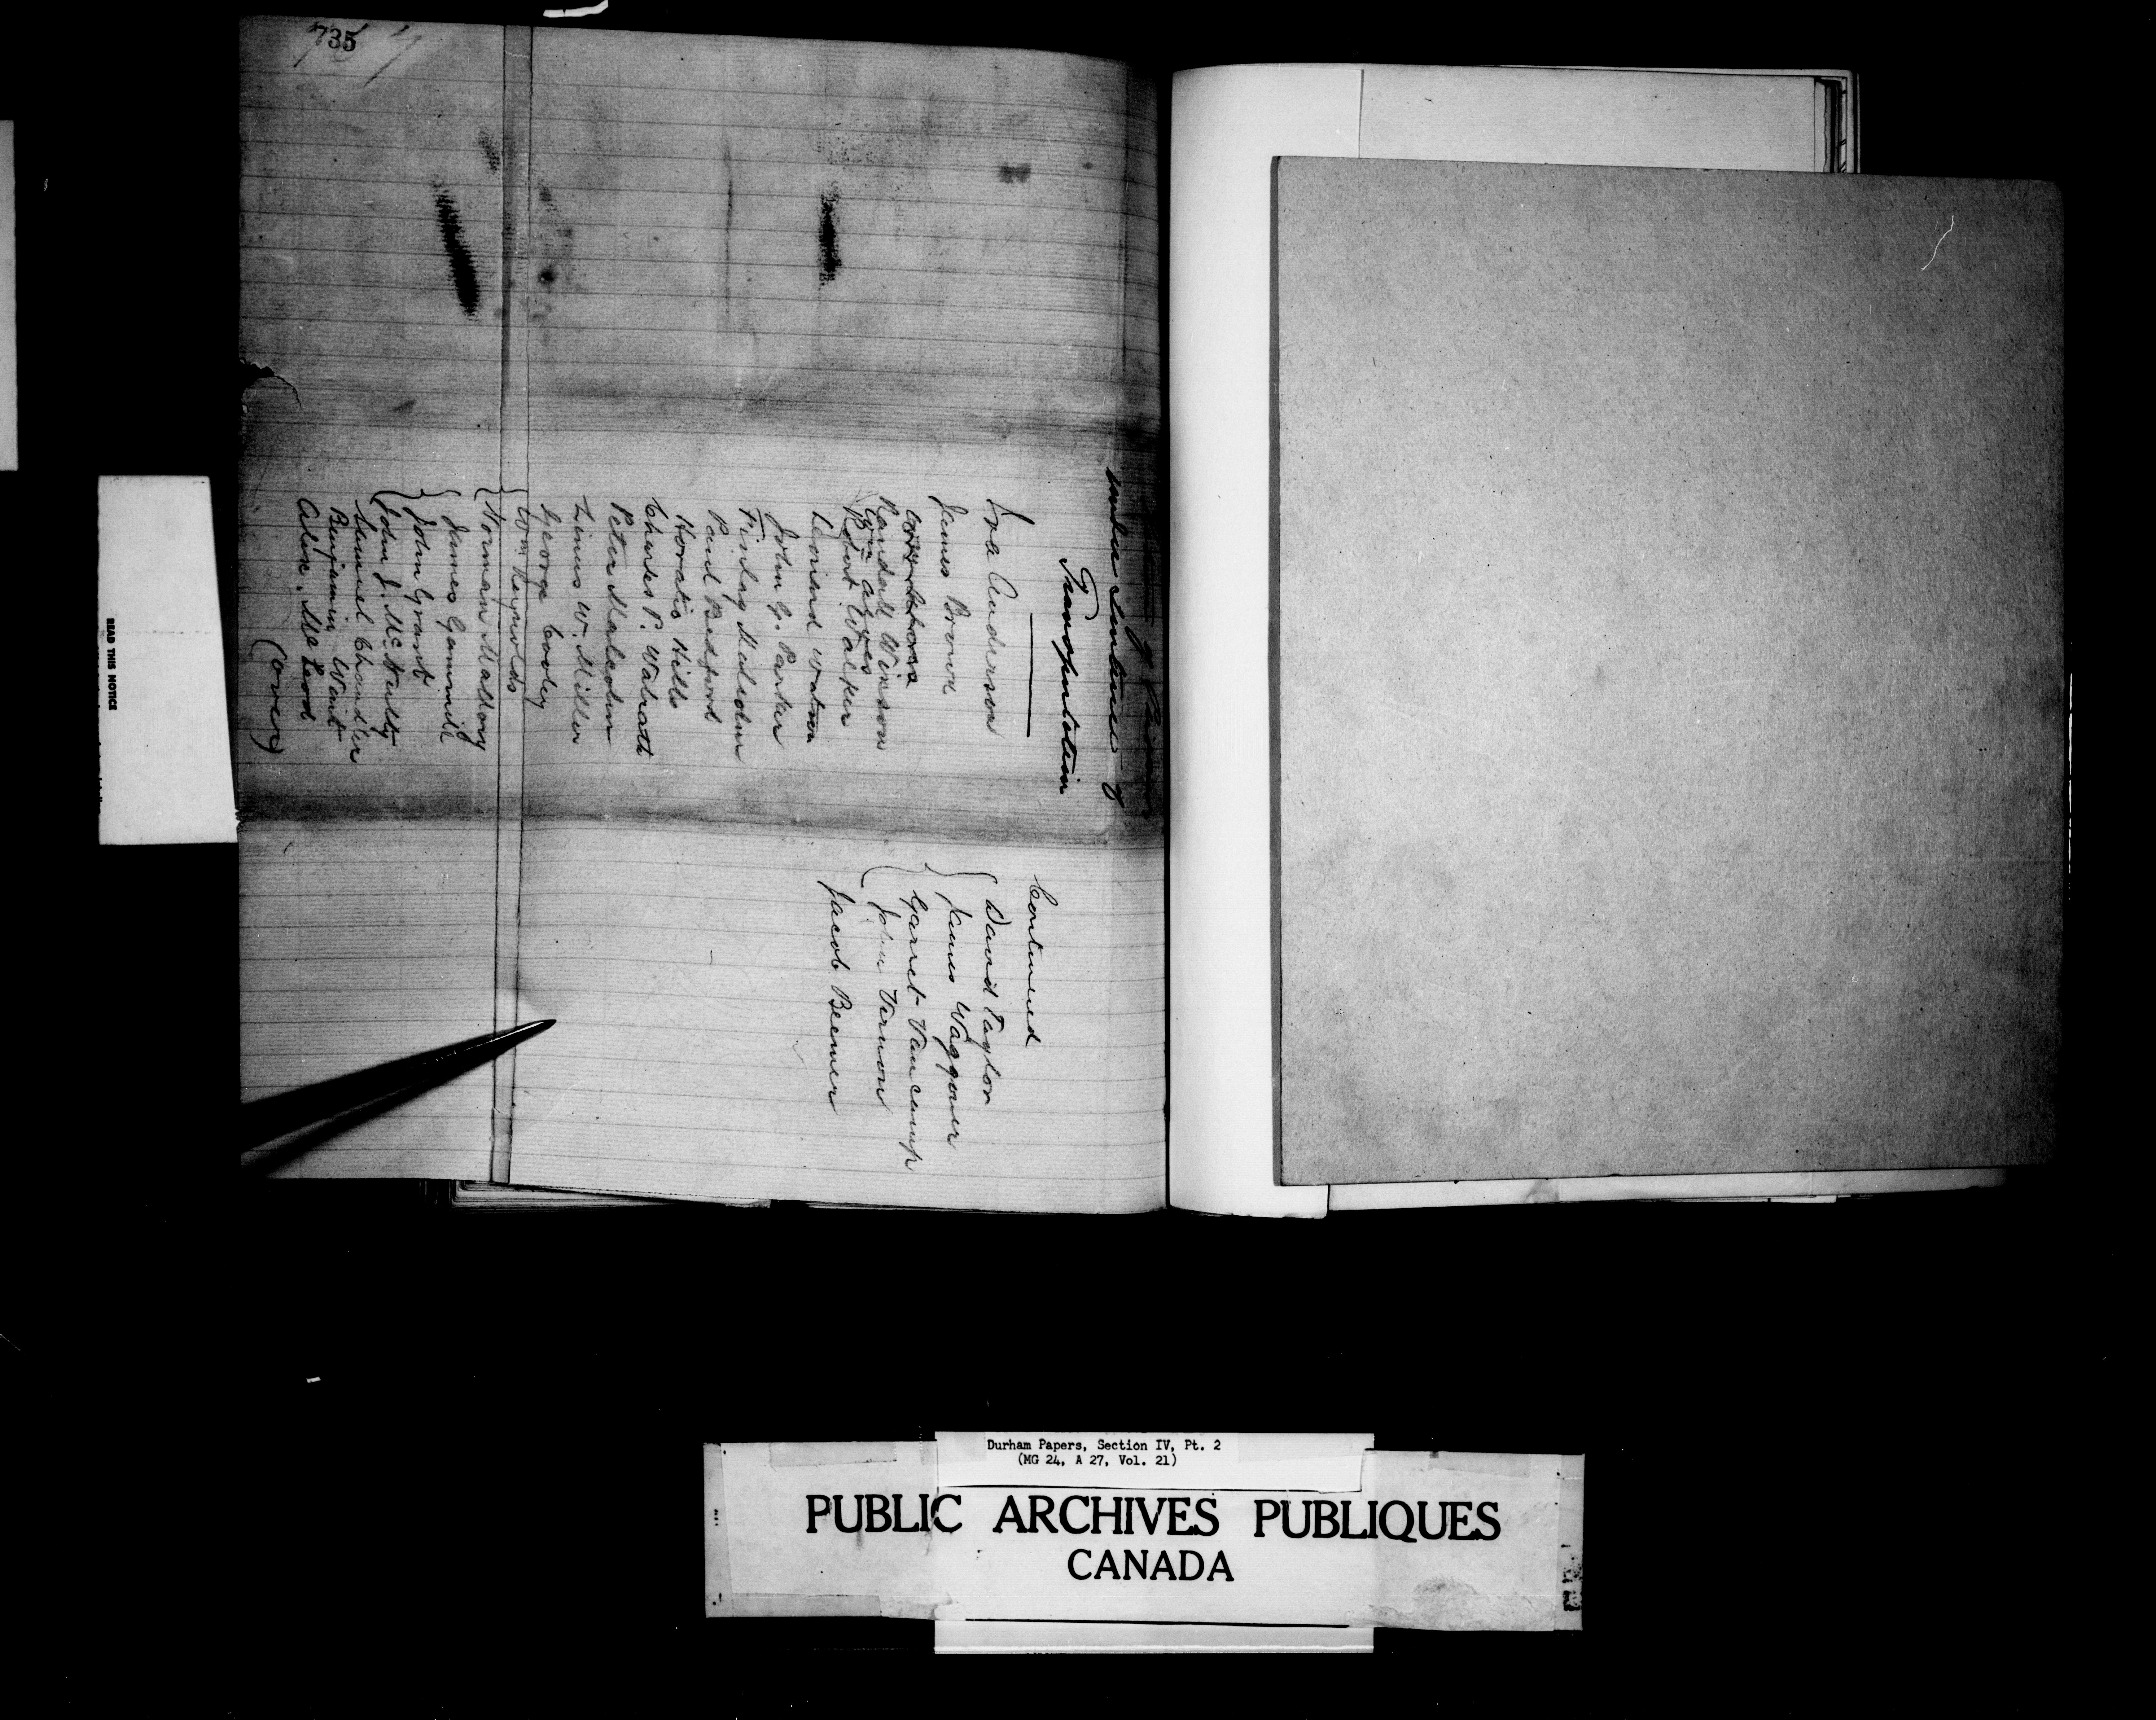 735
under sentence of
Transportation
Ira Anderson
James Brown
Randall Wixson
Wm Alves
Robert Walker
Leonard Watson
John G. Parker
Finlay Malcolm
Paul Bedford
Horatio Hills
Charles P. Walrath
Peter Malcolm
Linus W. Miller
George Cooley
Wm Reynolds
Norman Mallory
James Gammill
John Grant
John J. McNulty
Samuel Chandler
Benjamin Wait
Alexr. McLeod
(over)
Continued
David Taylor
James Waggoner
Garret Vancamp
John Vernon
Jacob Beemer
READ THIS NOTICE
Durham Papers, Section IV, Pt. 2
(MG 24, A 27, Vol. 21)
PUBLIC ARCHIVES PUBLIQUES
CANADA